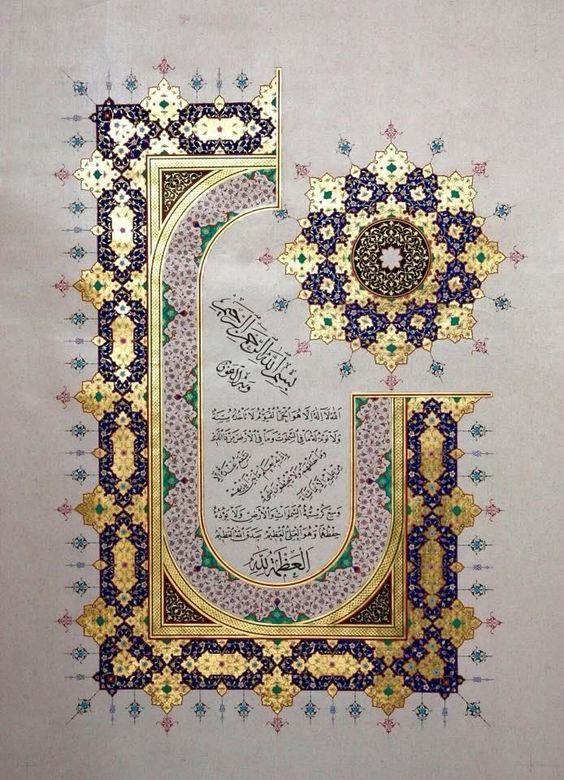 بسم الله الرحمن الرحيم
وبه العون
الله لا اله الا هو الحي القيوم لا تأخذه سنة
ولا نوم له ما في السموات وما في الارض من ذا الذي
يشفع عنده الا
باذنه يعلم ما بين ايديهم
وما خلفهم ولا يحيطون بشيء
من علمه الا بما شاء
وسع كرسيه السموات والارض ولا يؤده
حفظهما وهو العلي العظيم صدق الله العظيم
العظمة لله